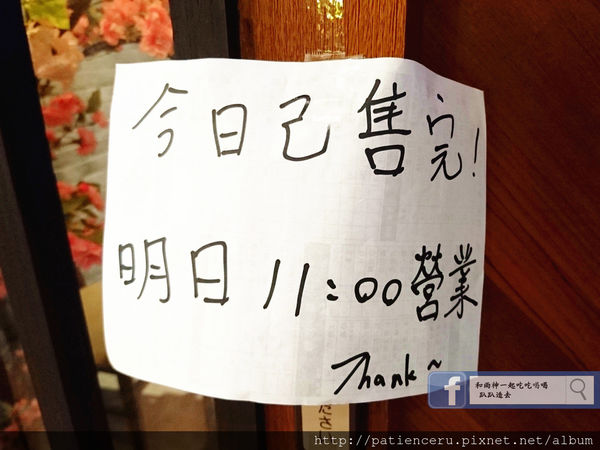 今日己售完!
明日11:00營業
Thank~
ださい
和雨神一起吃吃喝喝
趴趴造去
http://patienceru.pixnet.net/album